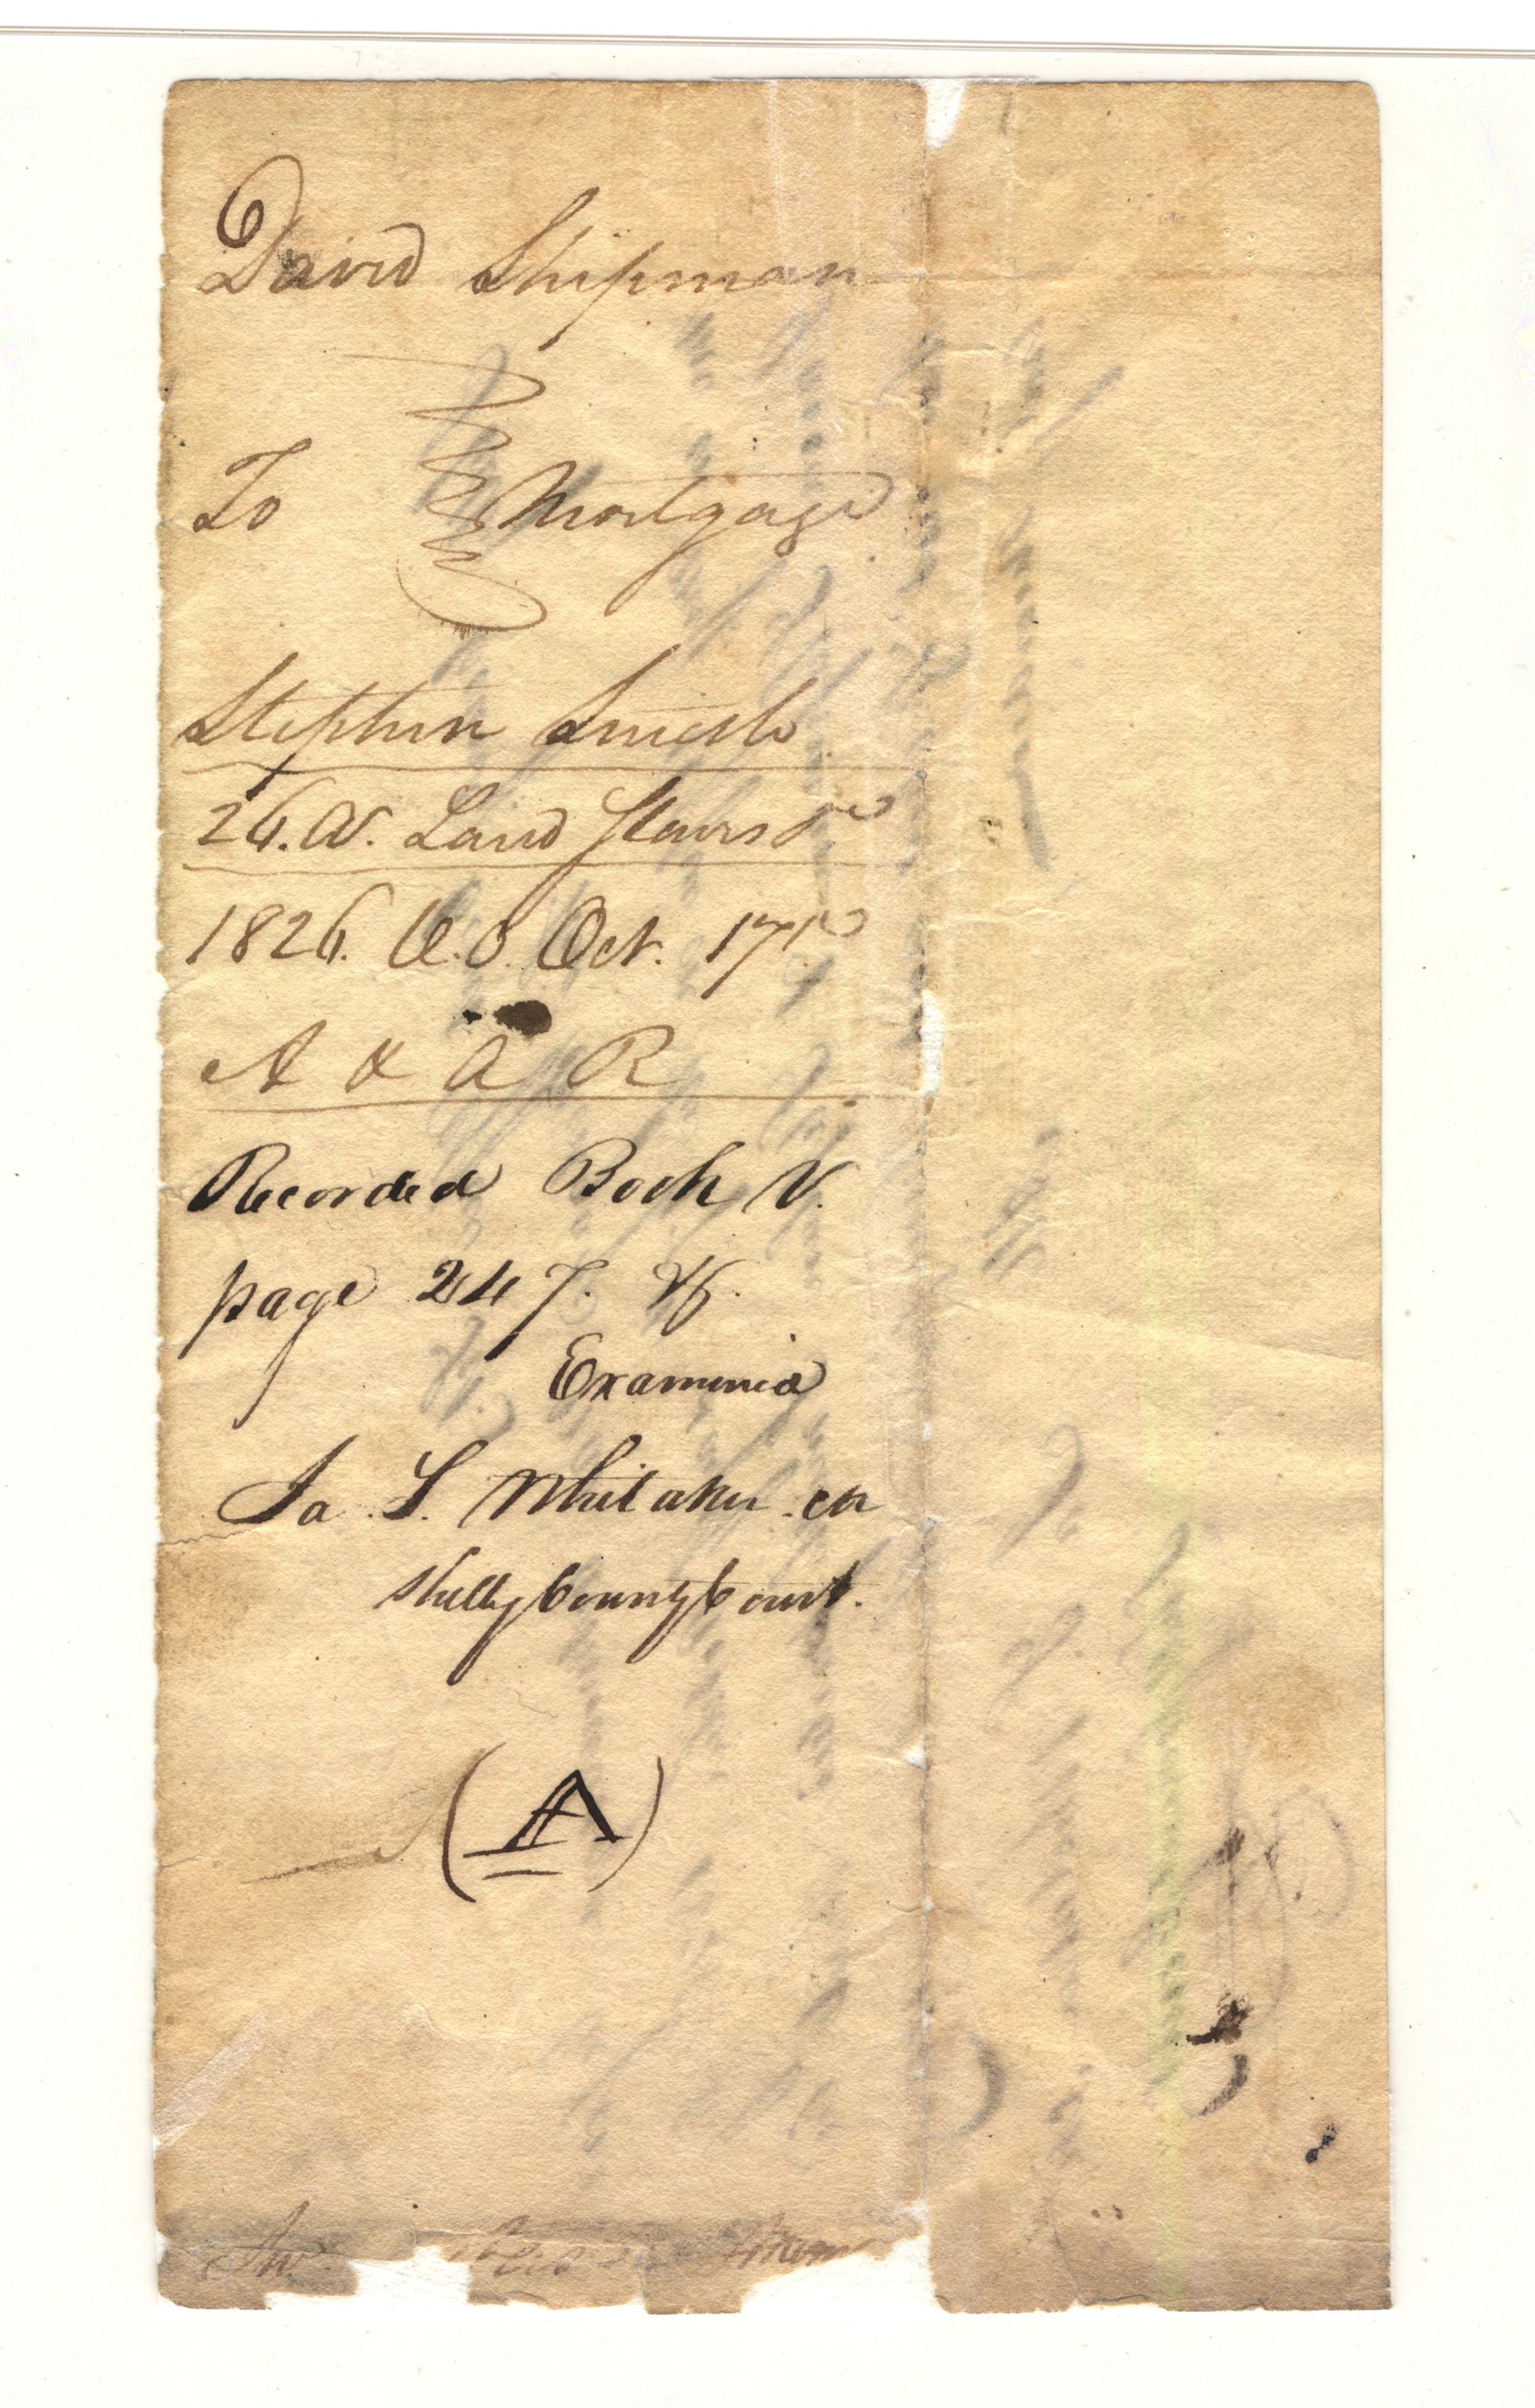 David Shipman
To Mortgage
Stephen Smith
26. A. Land Slaves &c
1826. O. O. Oct. 17th
A & A R
Recorded Book V.
page 247. &c.
Examined
Ja S. Whitaker clk
Shelby County Court.
(A)